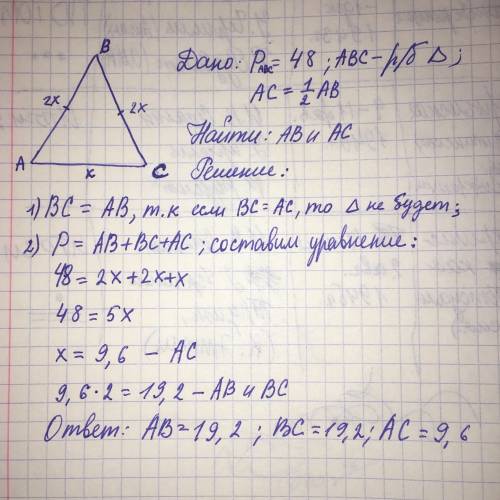 B
2x
2x
A
x
C
Дано: P ABC = 48 ; ABC – р/б Δ ;
AC = 1/2 AB
Найти: AB и AC
Решение:
1) BC = AB, т.к если BC = AC, то Δ не будет;
2) P = AB+BC+AC ; составим уравнение:
48 = 2x+2x+x
48 = 5x
x = 9,6 – AC
9,6·2 = 19,2 – AB и BC
Ответ: AB = 19,2 ; BC = 19,2; AC = 9,6